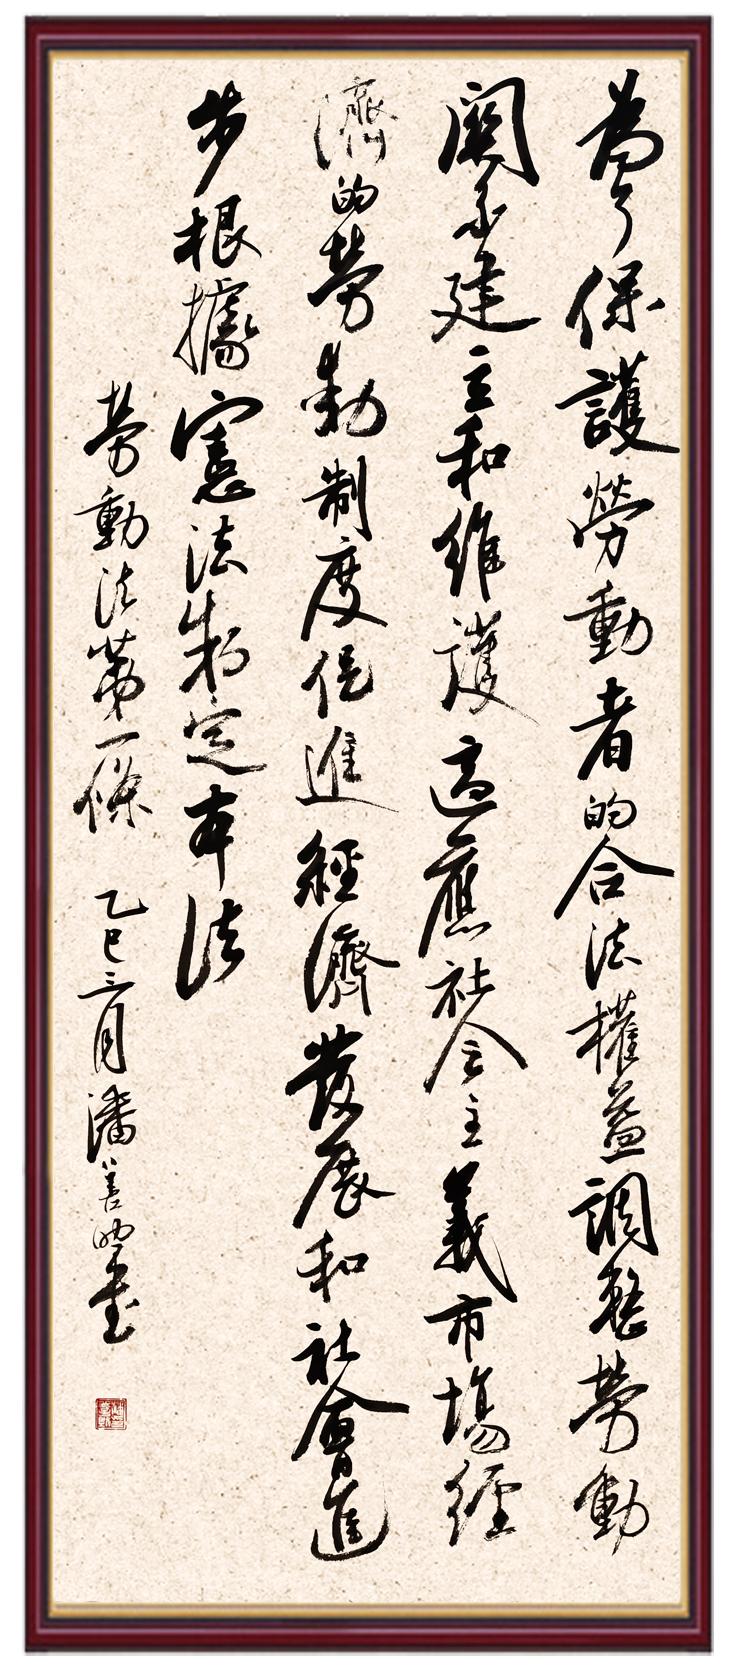 為了保護勞動者的合法權益調整勞動
關系建立和維護適應社会主義市場經
濟的勞動制度促進經濟發展和社會進
步根據憲法制定本法
勞動法第一條 乙巳三月潘善助書